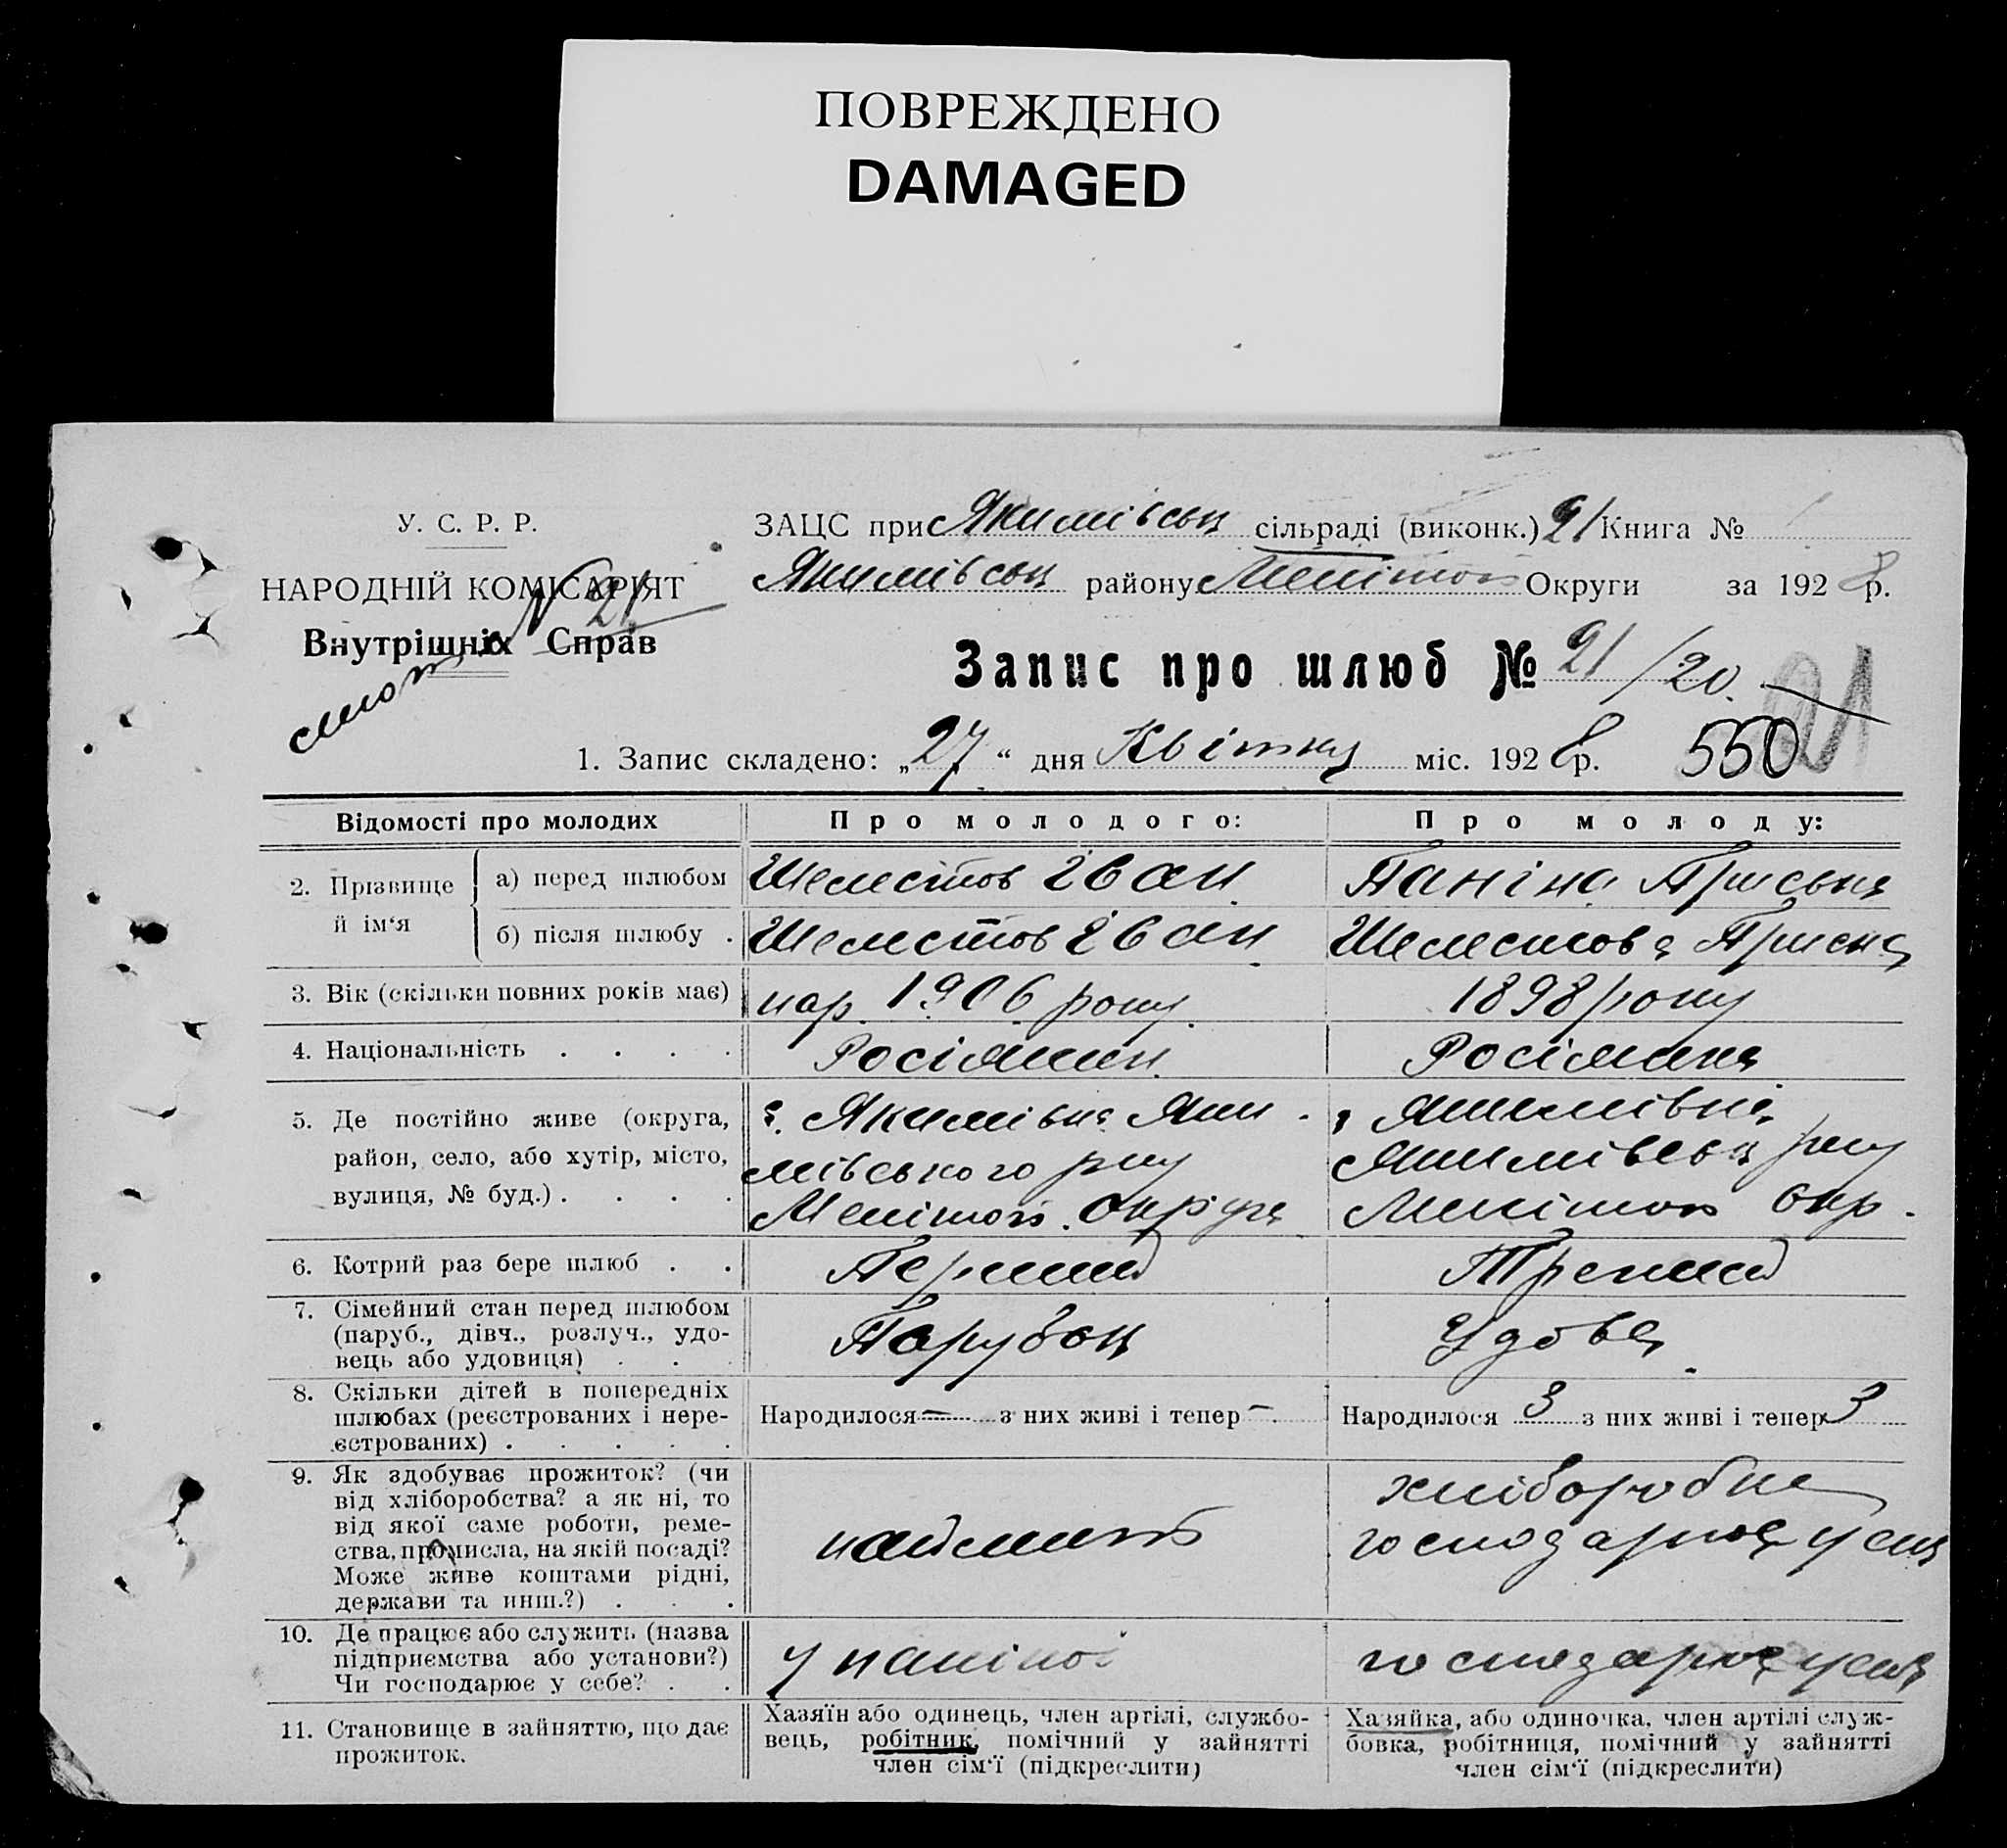 ПОВРЕЖДЕНО
DAMAGED
У. С. Р. Р.
НАРОДНІЙ КОМІСАРІЯТ
Внутрішніх Справ
№ 21
ЗАЦС при Якимівськ сільраді (виконк.) 21 Книга №
Якимівськ району Мелітоп Округи за 1928 р.
Запис про шлюб № 21/20.
21
550
1. Запис складено: „27“ дня Квітня міс. 1928 р.
Відомості про молодих
Про молодого:
Про молоду:
2. Прізвище й ім‘я
а) перед шлюбом
Шелестов Іван
Паніна Приська
б) після шлюбу .
Шелестов Іван
Шелестова Приска
3. Вік (скільки повних років має)
нар. 1906 року
1898 року
4. Національність . . . .
Росіянин
Росіянка
5. Де постійно живе (округа,
район, село, або хутір, місто,
вулиця, № буд.) . . . .
с. Якимівка Яки
мівського рну
Мелітоп. округа
с Якимівка
Якимівськ рну
Мелітоп окр.
6. Котрий раз бере шлюб . .
Перший
Третий
7. Сімейний стан перед шлюбом
(паруб., дівч., розлуч., удо-
вець або удовиця) . . .
Парубок
Удова
8. Скільки дітей в попередніх
шлюбах (реєстрованих і нере-
єстрованих) . . . . .
Народилося — з них живі і тепер —
Народилося 3 з них живі і тепер 3
9. Як здобуває прожиток? (чи
від хліборобства? а як ні, то
від якої саме роботи, реме-
ства, промисла, на якій посаді?
Може живе коштами рідні,
держави та инш.?) . . .
наймит
хліборобка
господарює у себе
10. Де працює або служить (назва
підприємства або установи?)
Чи господарює у себе? . .
у паніної
господарює у себе
11. Становище в зайняттю, що дає
прожиток.
Хазяїн або одинець, член артілі, службо-
вець, робітник, помічний у зайнятті
член сім‘ї (підкреслити)
Хазяйка, або одиночка, член артілі служ-
бовка, робітниця, помічний у зайнятті
член сім‘ї (підкреслити)